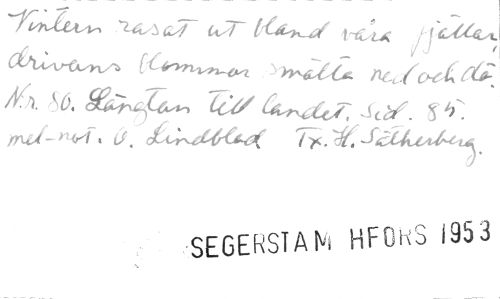 Vintern rasat ut bland våra fjällar,
drivans blommor smälta ned och dö.
N:r. 80. Längtan till landet. Sid. 85.
mel-not. O. Lindblad Tx. H. Sätherberg.
SEGERSTAM HFORS 1953